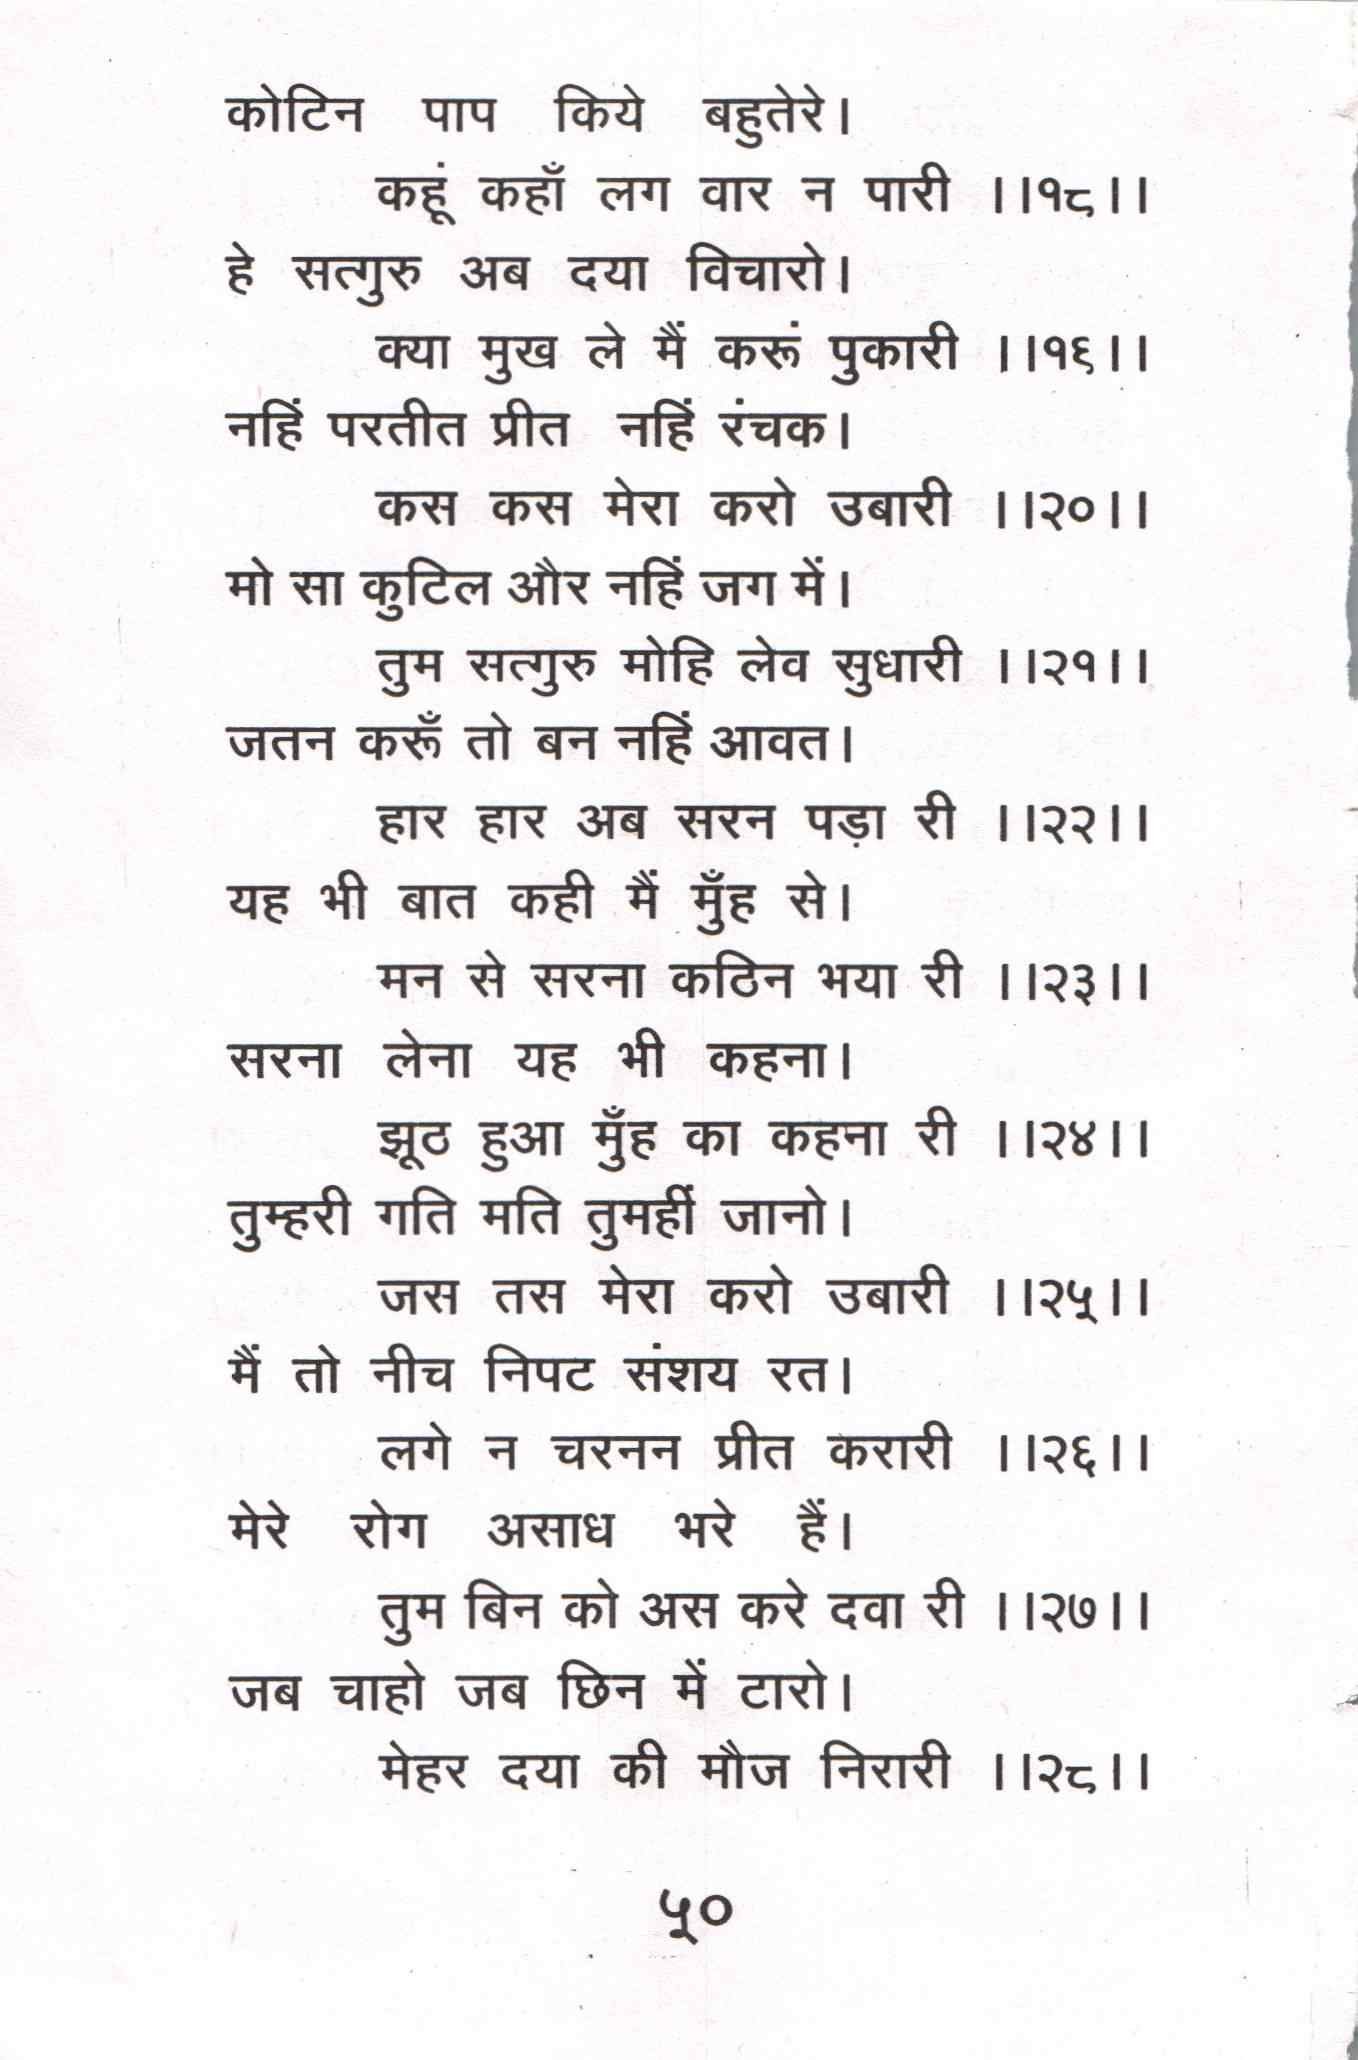 कोटिन पाप किये बहुतेरे।
कहूं कहाँ लग वार न पारी ।।१८।।
हे सत्गुरु अब दया विचारो।
क्या मुख ले मैं करूं पुकारी ।।१९।।
नहिं परतीत प्रीत नहिं रंचक।
कस कस मेरा करो उबारी ।।२०।।
मो सा कुटिल और नहिं जग में।
तुम सत्गुरु मोहि लेव सुधारी ।।२१।।
जतन करूँ तो बन नहिं आवत।
हार हार अब सरन पड़ा री ।।२२।।
यह भी बात कही मैं मुँह से।
मन से सरना कठिन भया री ।।२३।।
सरना लेना यह भी कहना।
झूठ हुआ मुँह का कहना री ।।२४।।
तुम्हरी गति मति तुमहीं जानो।
जस तस मेरा करो उबारी ।।२५।।
मैं तो नीच निपट संशय रत।
लगे न चरनन प्रीत करारी ।।२६।।
मेरे रोग असाध भरे हैं।
तुम बिन को अस करे दवा री ।।२७।।
जब चाहो जब छिन में टारो।
मेहर दया की मौज निरारी ।।२८।।
५०